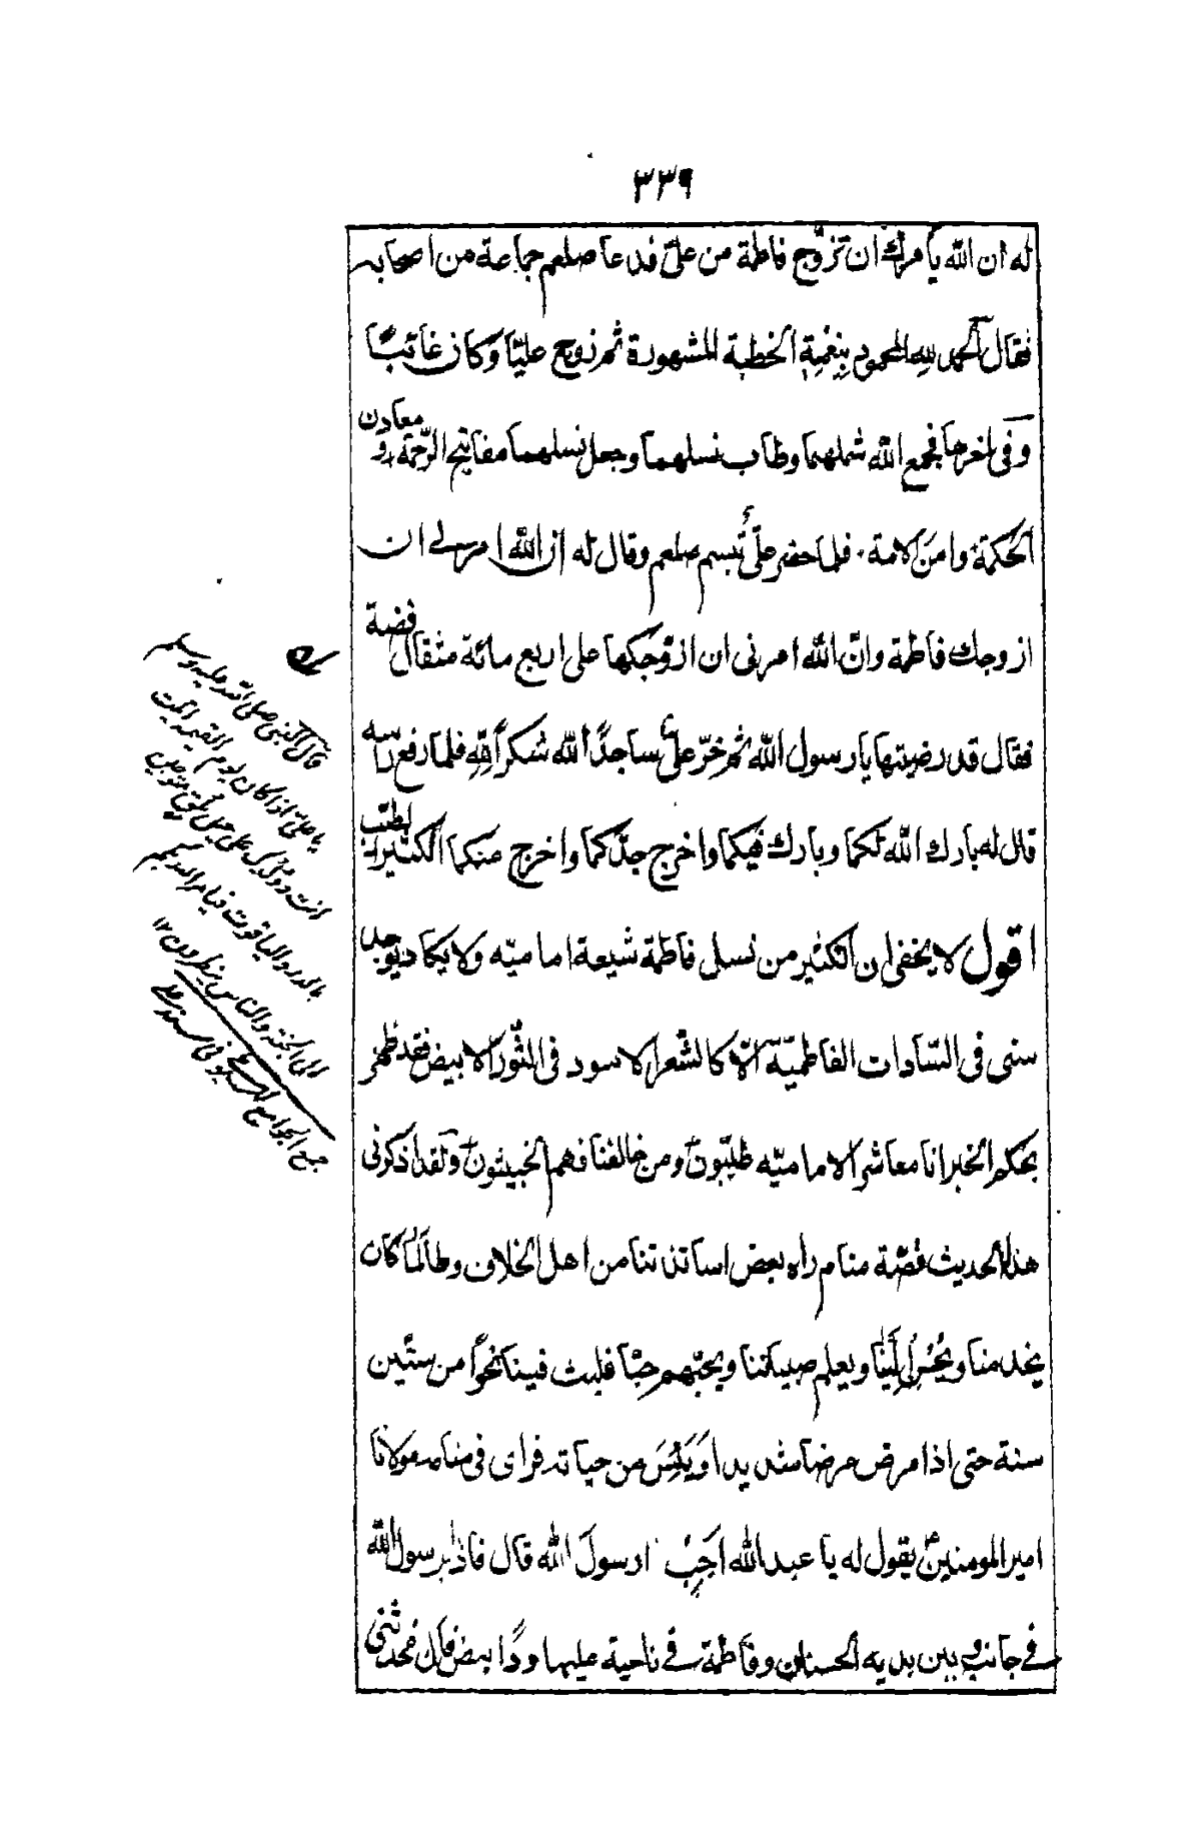 ٣٣٩
له ان الله يأمرك ان تزوّج فاطمة من علىّ فدعا صلعم جماعة من اصحابه
فقال الحمد لله المحمود بنِعْمِتِه الخطبة المشهورة ثم زوج عليّا وكان غائبًا
وفى اٰخرها فجمع الله شملهما وطاب نسلهما وجعل نسلهما مفاتيح الرّحمة و معادن
الحكمة وامنَ الامة فلما حضر علىّ تبسم صلعم وقال له ان الله امرنى ان
ازوجك فاطمة وانّ الله امرنى ان ازوّجكها على اربع مائة مثقال فضة
فقال قد رضيتها يا رسول الله ثم خرّ علىّ ساجدًا لله شكرًا لله فلما رفع راسه
قال له بارك الله لكما وبارك فيكما واخرج جدّكما واخرج منكما الكثير الطيّب
اقول لا يخفى ان الكثير من نسل فاطمة شيعة اماميّه ولا يكاد يوجد
سنى فى السّادات الفاطميّة الّا كالشّعر الاسود فى الثّور الابيض فقد ظهر
بحكم الخبر انا معاشر الاماميّه طيّبون ومن خالفنا فهم الخبيثون ولقد اذكرنى
هذا الحديث قصّة منام راه بعض اساتذتنا من اهل الخلاف وطالما كان
يخدمنا ويُحْسِنُ اِلَيْنا ويعلم صبياننا ويحبّهم حبّا فلبث فينا نحوًا من ستّين
سنة حتى اذا مرض مرضا شديدا وَيَئِسَ من حياته فراى فى منامه مولانا
امير المومنين يقول له يا عبد الله اَجِبْ رسولَ الله قال فاذا برسول الله
فى جانب وبين يديه الحسنان وفاطمة فى ناحية عليها ردًا ابيض قال فحدثنى
قال النبى صلى الله عليه وسلم
يا على اذا كان يوم القيمه اتيت
انت وولدك على خيل بلق متوجين
بالدر والياقوت فيامر الله بكم
الى الجنة والناس ينظرون ١٢
جمع الجوامع للسيوطى فى مسند على